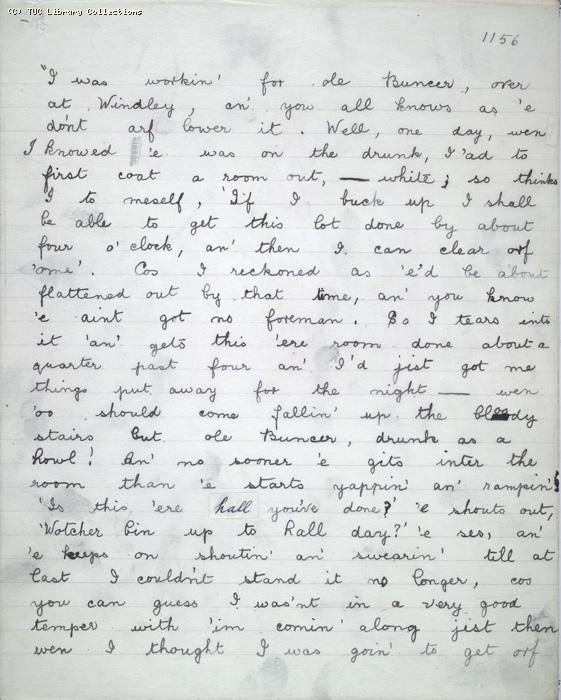 (C) TUC Library Collections
1156
"I was workin' for ole Buncer, over
at Windley, an' you all knows as 'e
dont arf lower it. Well, one day, wen
I knowed 'e was on the drunk, I 'ad to
first coat a room out, — white; so thinks
I to meself, 'If I buck up I shall
be able to get this lot done by about
four o'clock, an' then I can clear orf
'ome'. Cos I reckoned as 'e'd be about
flattened out by that time, an' you know
'e aint got no foreman. So I tears into
it 'an' gets this 'ere room done about a
quarter past four an' I'd jist got me
things put away for the night — wen
'oo should come fallin' up the bloody
stairs but ole Buncer, drunk as a
howl! An' no sooner 'e gits inter the
room than 'e starts yappin' an' rampin'!
'Is this 'ere hall you've done?' 'e shouts out,
'Wotcher bin up to hall day?' 'e ses, an'
'e keeps on shoutin' an' swearin' till at
last I couldn't stand it no longer, cos
you can guess I was'nt in a very good
temper with 'im comin' along jist then
wen I thought I was goin' to get orf